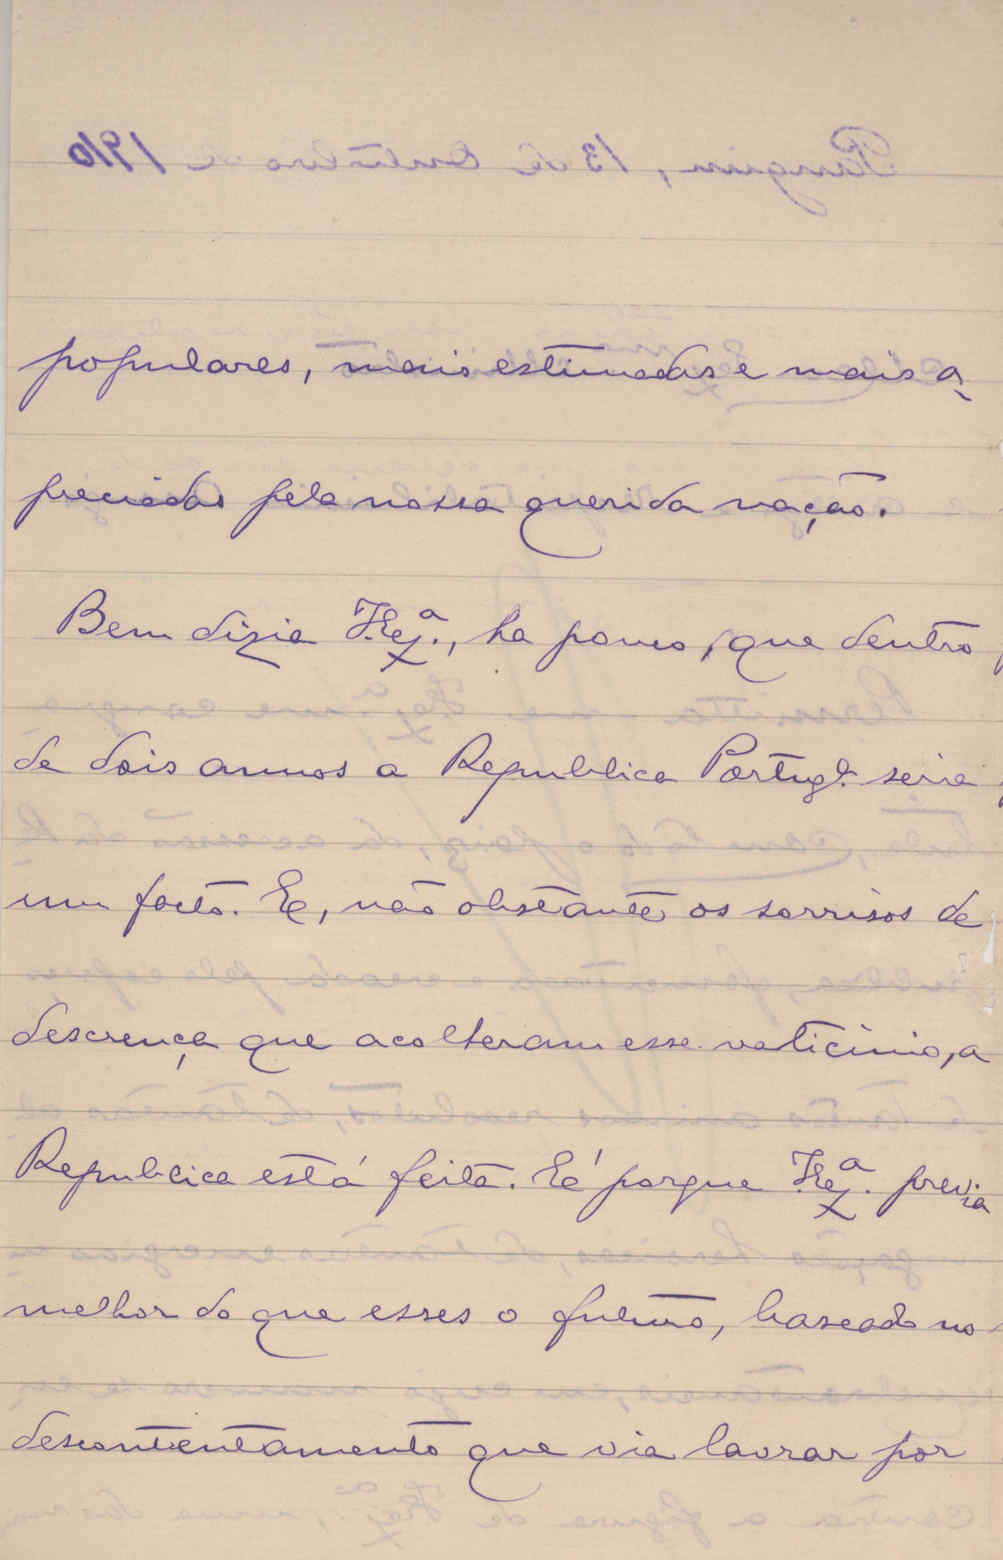 populares, mais estimadas e mais a-
preciadas pela nossa querida nação.
Bem dizia V. Ex.ª, ha pouco, que dentro
de dois annos a Republica Portug.ª seria
um facto. E, não obstante os sorrisos de
descrença que acolheram esse vaticinio, a
Republica está feita. É porque V. Ex.ª previa
melhor do que esses o futuro, baseado no
descontentamento que via lavrar por